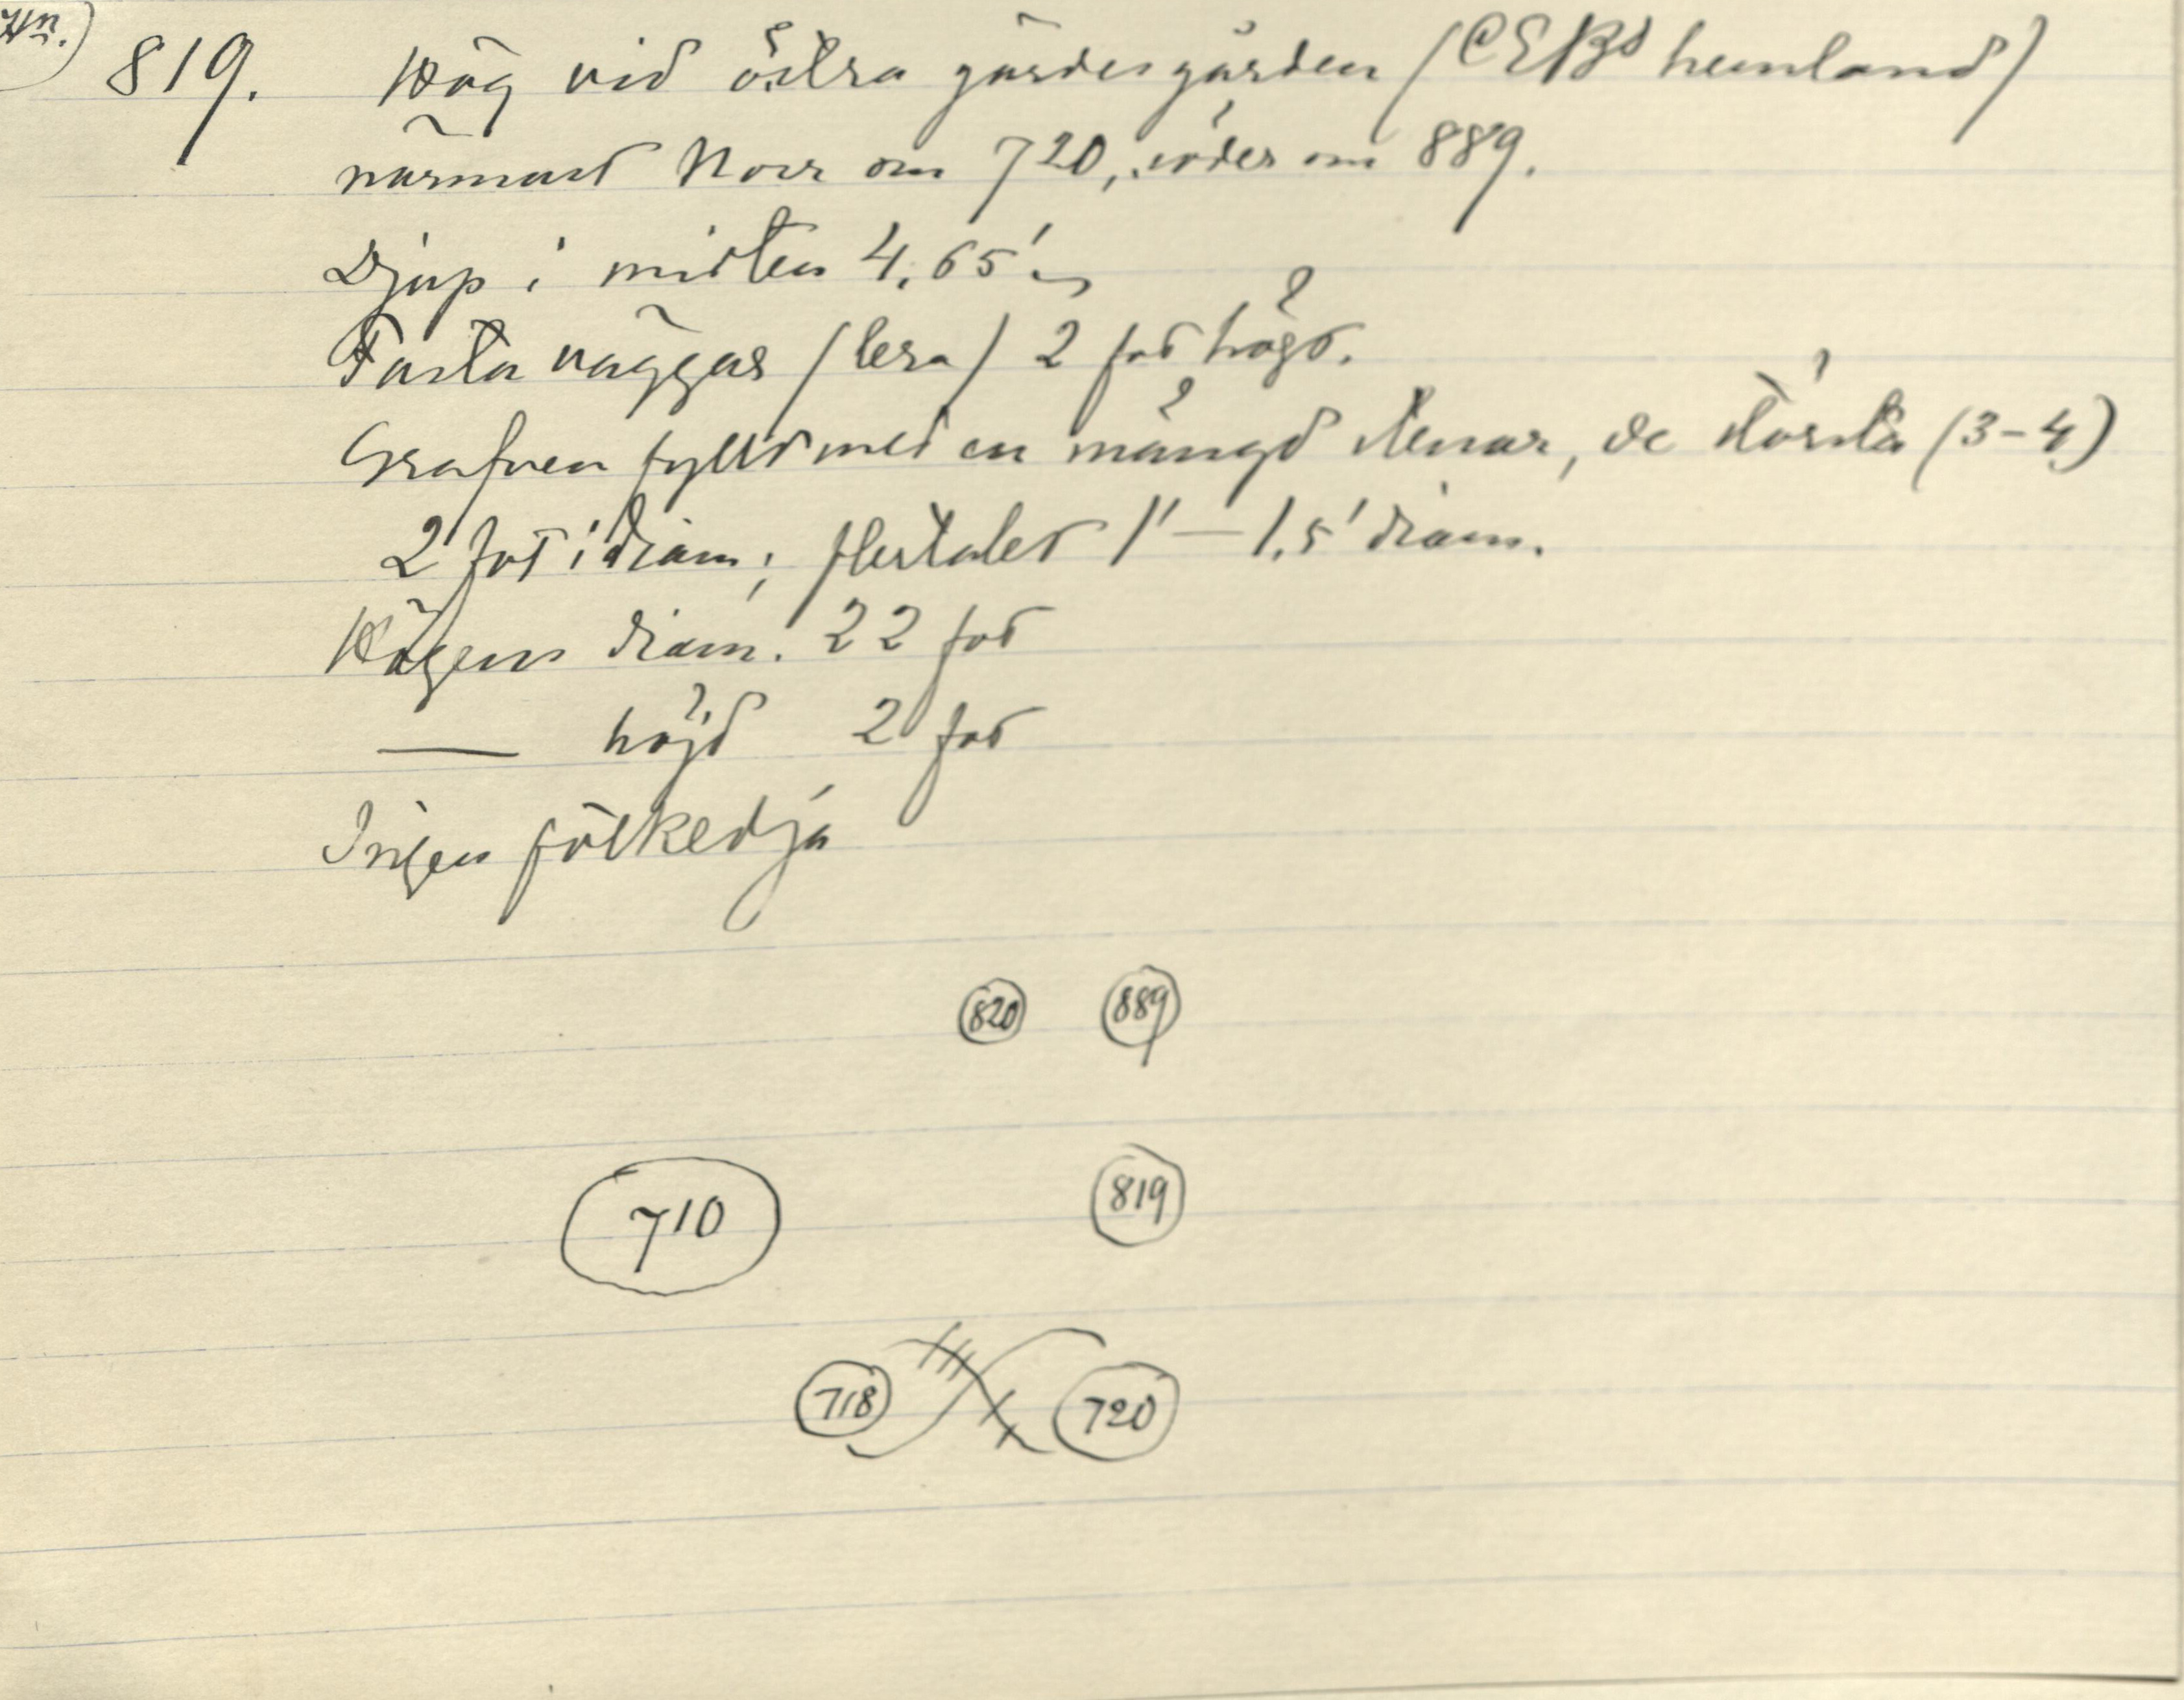 819. Hög vid östra gärdesgården (CEBs hemland)
närmast Norr om 720, söder om 889.
Djup i midten 4,65'
Fasta väggar (lera) 2 fot högt.
Grafven fylld med en mängd stenar, de största (3-4)
2 fot i diam; flertalet 1' — 1,5' diam.
Högens diam. 22 fot
— höjd 2 fot
Ingen fotkedja
820 889
710 819
718 720